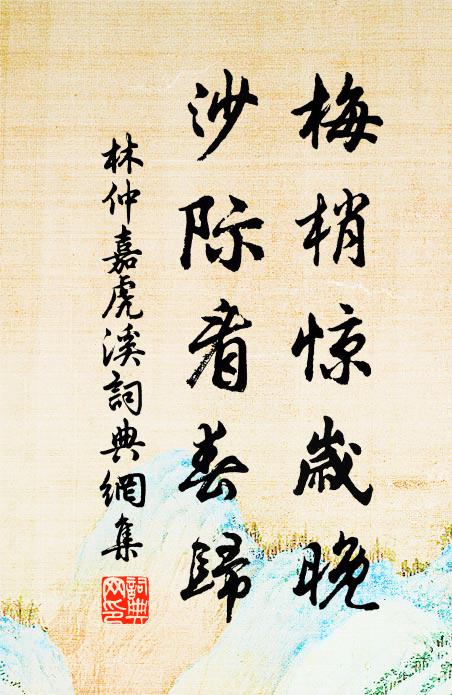 梅梢惊歲晚
沙际看春歸
林仲嘉虎溪詞典網集
詞典网印